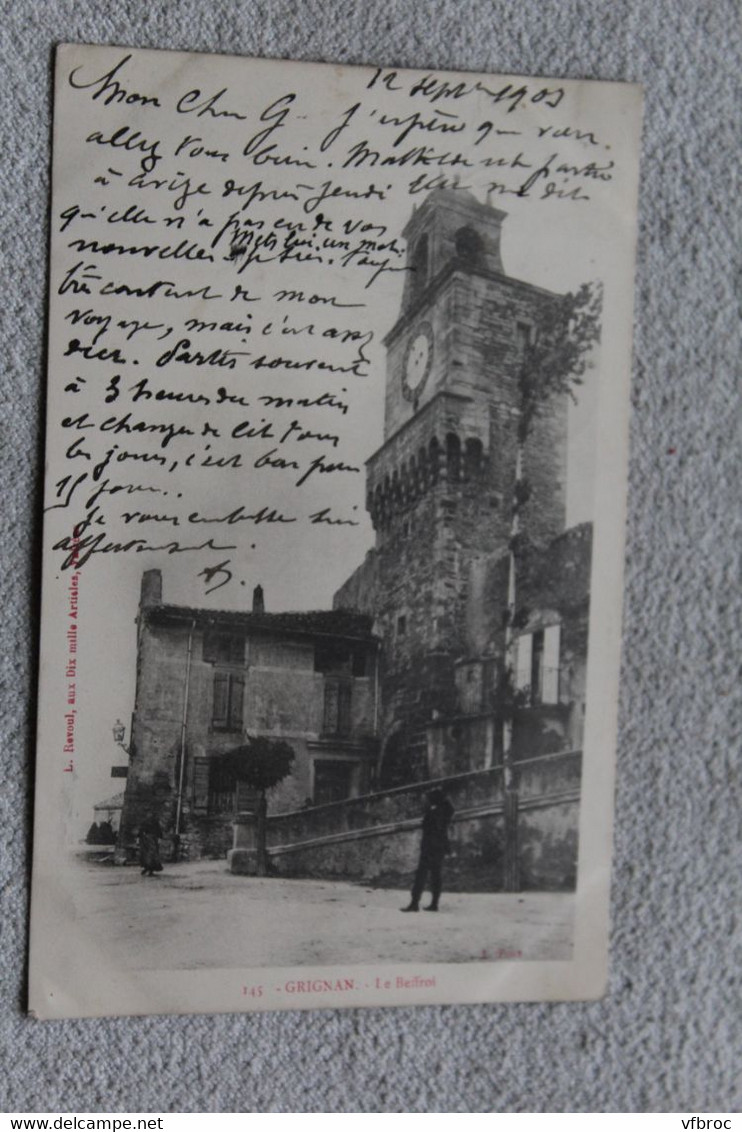 12 Septbre 1903
Mon Cher G. J'espère que vous
allez tous bien. Mathilde est partie
à depuis jeudi Elle me dit
qu'elle n'a pas eu de vos
nouvelles Mets lui un mot.
très content de mon
voyage, mais c'est assez
dur. Partis souvent
à 3 heures du matin
et changer de lit tous
les jours, c'est bon pour
15 jours..
Je vous embrasse bien
affectueusement.
L. Revoul, aux Dix mille Articles,
145 - GRIGNAN. - Le Beffroi
vfbroc